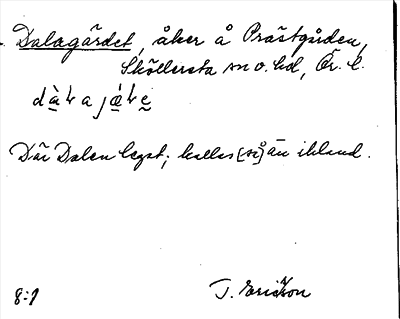 Dalagärdet, åker å Prästgården,
Sköllersta sn o. hd, Ör. l.
Där Dalen legat; kallas [så] än ibland.
8:1
T. Ericsson